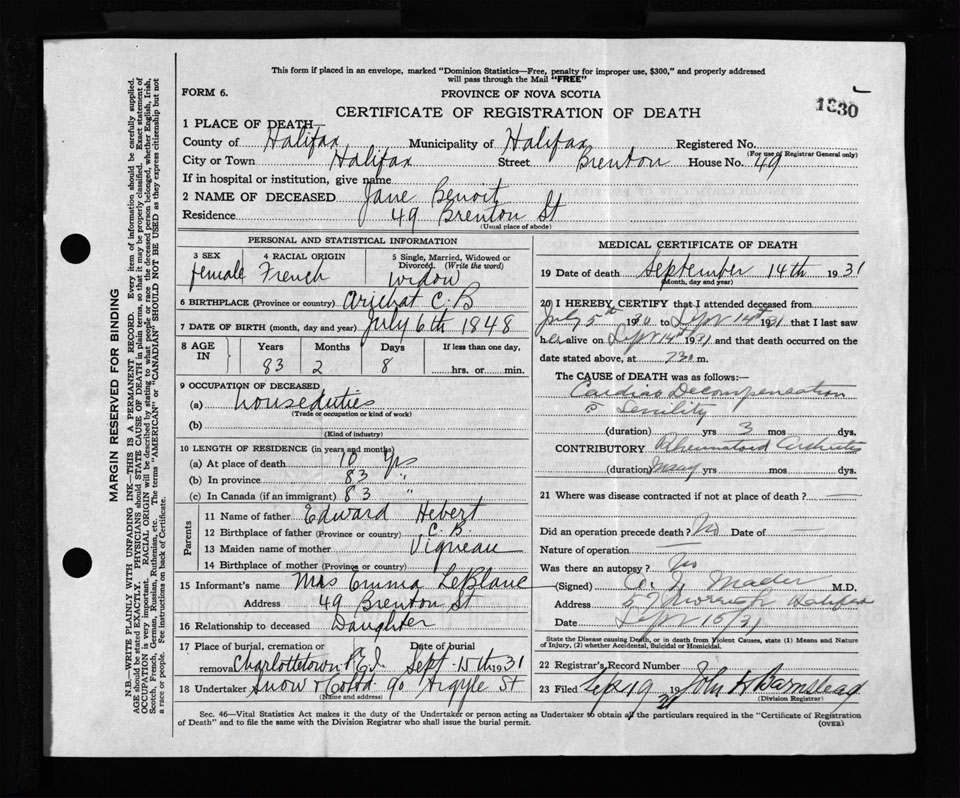 This form if placed in an envelope, marked "Dominion Statistics—Free, penalty for improper use, $300," and properly addressed
will pass through the Mail "FREE"
FORM 6.
PROVINCE OF NOVA SCOTIA
CERTIFICATE OF REGISTRATION OF DEATH
1830
1 PLACE OF DEATH—
County of Halifax Municipality of Halifax Registered No.
(For use of Registrar General only)
City or Town Halifax Street Brenton House No. 49
If in hospital or institution, give name
2 NAME OF DECEASED Jane Benoit
Residence 49 Brenton St
(Usual place of abode)
PERSONAL AND STATISTICAL INFORMATION
3 SEX 4 RACIAL ORIGIN 5 Single, Married, Widowed or
Divorced. (Write the word)
female French widow
6 BIRTHPLACE (Province or country) Arichat C. B
7 DATE OF BIRTH (month, day and year) July 6th 1848
8 AGE IN Years Months Days If less than one day,
83 2 8 hrs. or min.
9 OCCUPATION OF DECEASED
(a) houseduties
(Trade or occupation or kind of work)
(b)
(Kind of industry)
10 LENGTH OF RESIDENCE (in years and months)
(a) At place of death 10 yrs
(b) In province 83 "
(c) In Canada (if an immigrant) 83 "
Parents
11 Name of father Edward Hebert
12 Birthplace of father (Province or country) C. B.
13 Maiden name of mother Vigneau
14 Birthplace of mother (Province or country)
15 Informant's name Mrs Emma LeBlanc
Address 49 Brenton St
16 Relationship to deceased Daughter
17 Place of burial, cremation or Date of burial
removal Charlottetown P.E.I Sept 15th 1931
18 Undertaker Snow & Co 90 Argyle St
(Name and address)
MEDICAL CERTIFICATE OF DEATH
19 Date of death September 14th 1931
(Month, day and year)
20 I HEREBY CERTIFY that I attended deceased from
July 5th to Sept 14th 1931 that I last saw
her alive on Sept 14th 1931 and that death occurred on the
date stated above, at 730 m.
The CAUSE of DEATH was as follows:—
Cardiac Decompensation
Senility
(duration) yrs 3 mos dys.
CONTRIBUTORY Rheumatoid Arthritis
(duration) Many yrs mos dys.
21 Where was disease contracted if not at place of death?
Did an operation precede death? No Date of
Nature of operation
Was there an autopsy? No
(Signed) Mader M.D.
Address Halifax
Date Sept 15/31
State the Disease causing Death, or in death from Violent Causes, state (1) Means and Nature
of Injury, (2) whether Accidental, Suicidal or Homicidal.
22 Registrar's Record Number
23 Filed Sep 19 31 John Barnstead
(Division Registrar)
Sec. 46—Vital Statistics Act makes it the duty of the Undertaker or person acting as Undertaker to obtain all the particulars required in the "Certificate of Registration
of Death" and to file the same with the Division Registrar who shall issue the burial permit.
(OVER)
MARGIN RESERVED FOR BINDING
N.B.—WRITE PLAINLY WITH UNFADING INK—THIS IS A PERMANENT RECORD. Every item of information should be carefully supplied.
AGE should be stated EXACTLY. PHYSICIANS should STATE CAUSE OF DEATH in plain terms, so that it may be properly classified. Exact statement of
OCCUPATION is very important. RACIAL ORIGIN will be described by stating to what people or race the deceased person belonged, whether English, Irish,
Scotch, French, German, Russian, Ruthenian, etc. The terms "AMERICAN" or "CANADIAN" SHOULD NOT BE USED as they express citizenship but not
a race or people. Fee instructions on back of Certificate.